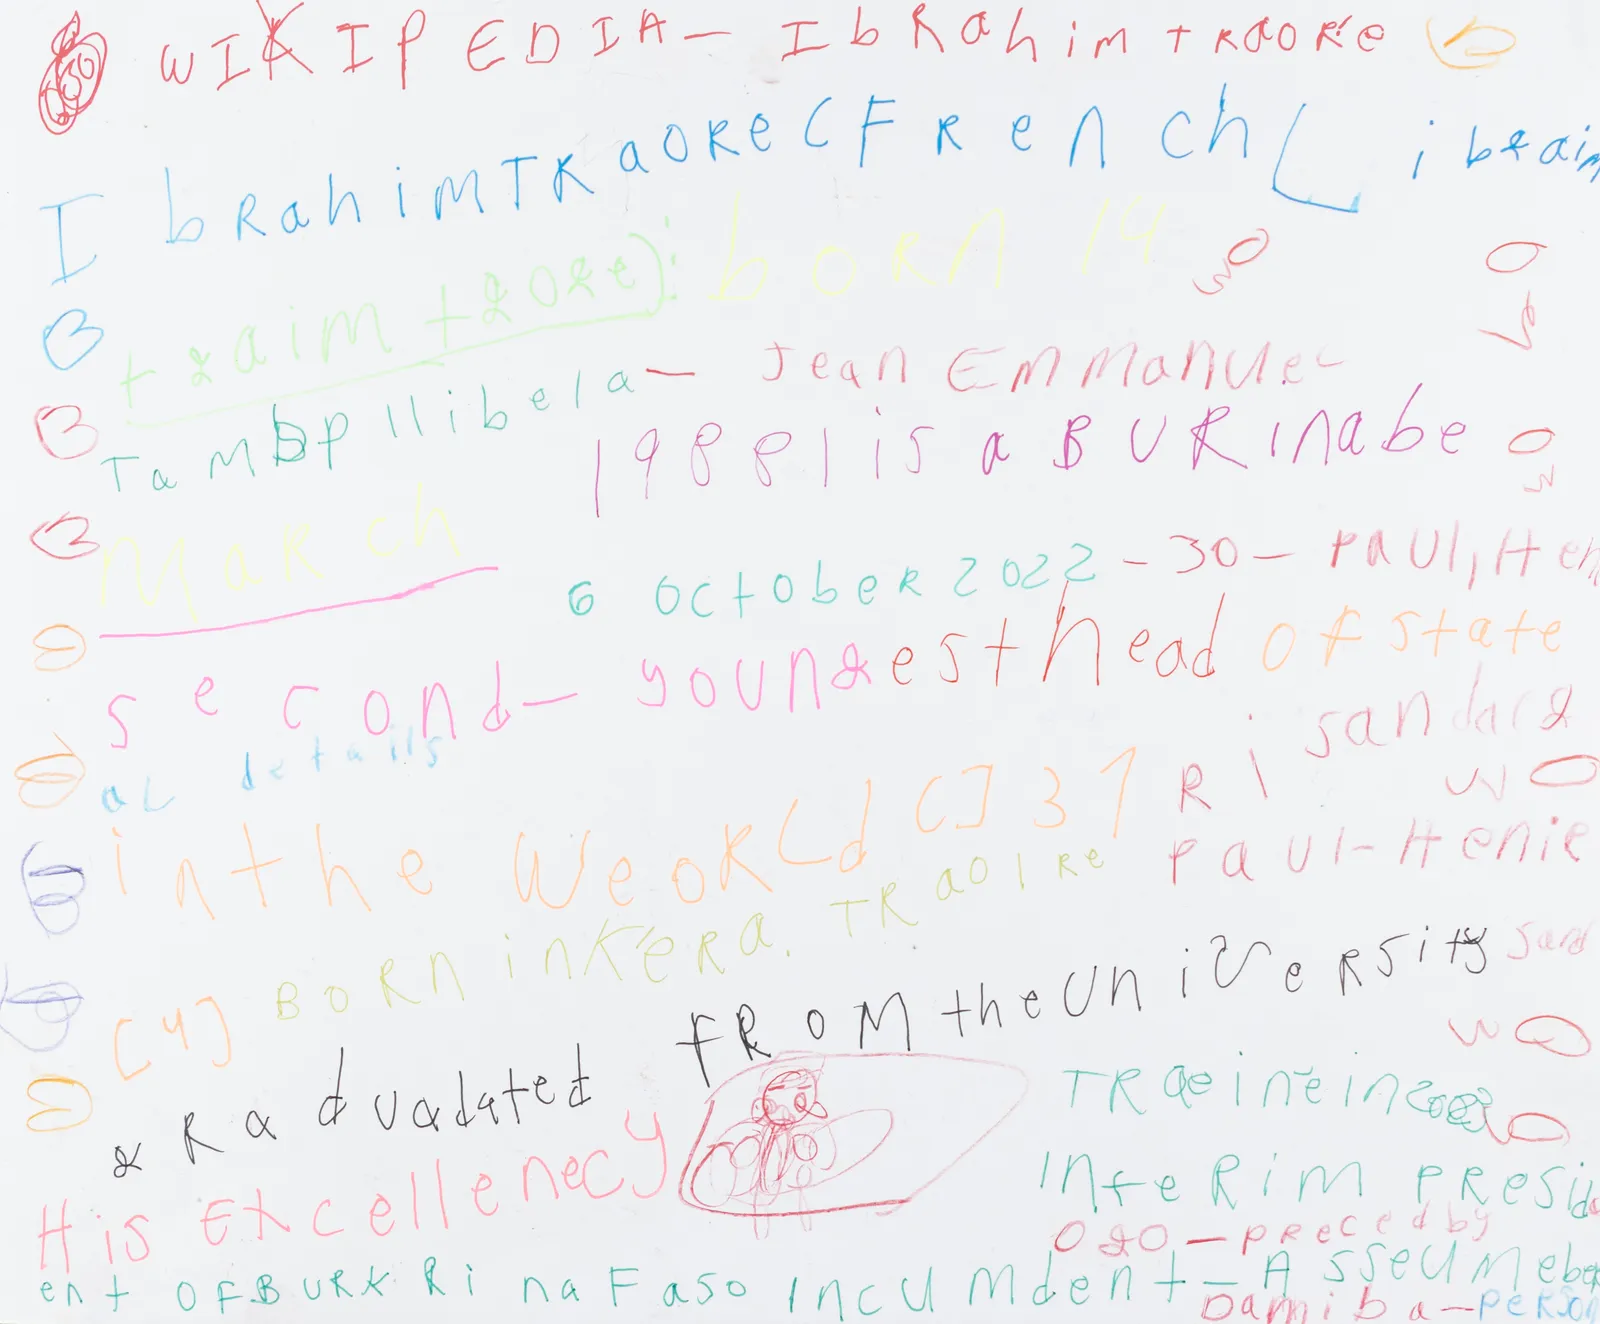 WIKIPEDIA- IbRahim tRaoRe
IbRahimTRaoReCFRench[ ibraim
traim traore): boRn 14
Tambpllibela- Jean Emmanuel
19881 is a BURinabe
MaRch
6 OctobeR 2022 -30- Paul, Hen
second- youngest head of state
al details
Ri sandara
in the WeoRLd [] 37
Paul-Henie
[4] BORn in KeRa. TRaoiRe
sand
gRaduadated fRoM the UniveRsity
TRaeineine in 2009
His Excellenecy
inteRim PResid
020- preceded by
ent Of BURKRina Faso Incumdent- Asseumebe
Damiba- Person